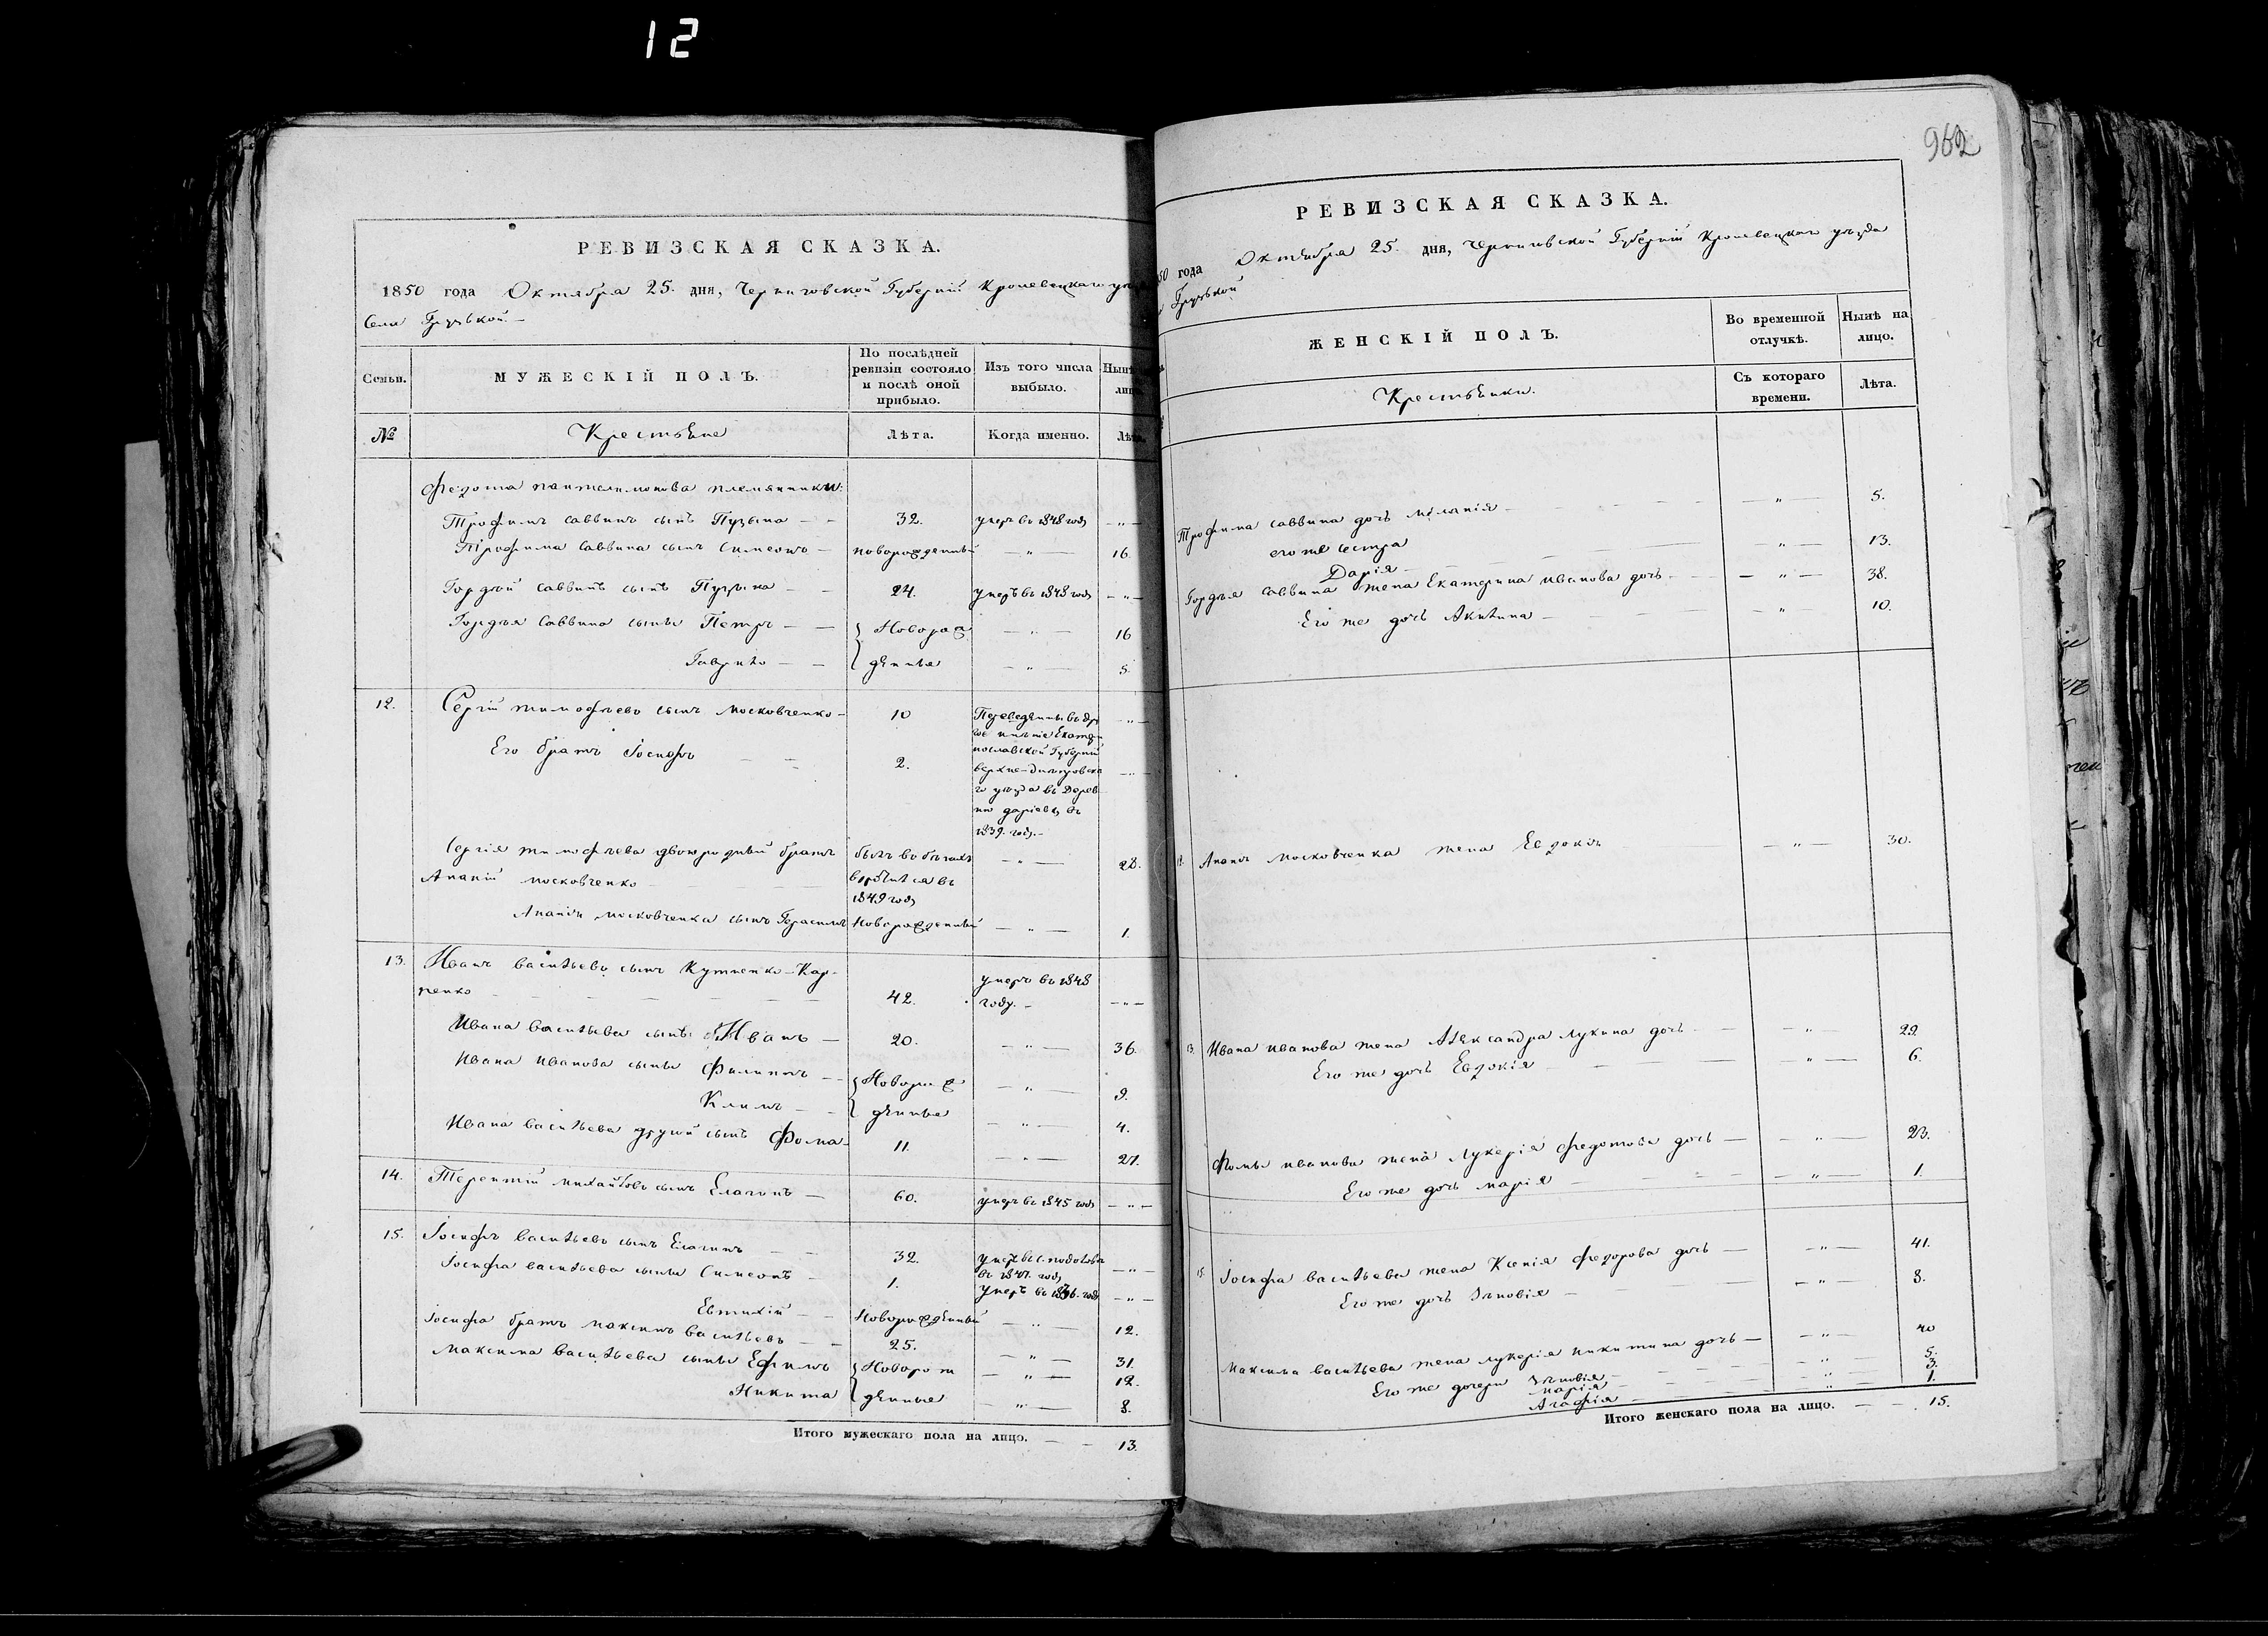 12
РЕВИЗСКАЯ СКАЗКА.
1850 года Октября 25. дня, Черниговской Губерніи Кролевецкаго
Села Грузькой.—
Семьи.
МУЖЕСКІЙ ПОЛЪ.
По послѣдней ревизіи состояло и послѣ оной прибыло.
Изъ того числа выбыло.
№
Крестьяне
Лѣта.
Когда именно.
Федота Пантелимонова племянники:
Трофимъ Саввинъ сынъ Пузына — 32. умеръ въ 1848 году — " —
Трофима Саввина сынъ Симеонъ — новорожденный — " — 16.
Гордѣй Саввинъ сынъ Пузына — 24. умеръ въ 1848 году — " —
Гордѣя Саввина сыны Петръ — Новорож — " — 16
Гаврило — денные — " — 5.
12. Сергій Тимофѣевъ сынъ Московченко — 10 Переведены въ др
гое имѣніе Екатери
Его братъ Іосифъ — 2. нославской Губерніи
верхне-днепровска
го уѣзда въ Дерев
ню Даріевку въ
1839. году.—
Сергія Тимофѣева двоюродный братъ былъ въ бѣгахъ — " — 28.
Ананій Московченко возвратился въ
1849 году
Ананія Московченка сынъ Герасимъ Новорожденный — " — 1.
13. Иванъ Васильевъ сынъ Кутченко-Кар-
пенко — 42. умеръ въ 1848 году. — " —
Ивана Васильева сынъ Иванъ — 20. — " — 36.
Ивана Иванова сыны Филипъ — Новорож — " — 9.
Климъ — денные — " — 4.
Ивана Васильева другой сынъ Фома — 11. — " — 27.
14. Терентій Михайловъ сынъ Елагинъ — 60. умеръ въ 1845 году — " —
15. Іосифъ Васильевъ сынъ Елагинъ — 32. въ 1847. году — " —
Іосифа Васильева сыны Симеонъ — 1. умеръ въ 1836. году — " —
Евтихій — Новорожденный — " — 12.
Іосифа братъ Максимъ Васильевъ — 25. — " — 31.
Максима Васильева сыны Ефимъ Новорож — " — 12.
Никита денные — " — 8.
Итого мужескаго пола на лицо. — — 13.
962
РЕВИЗСКАЯ СКАЗКА.
50 года Октября 25. дня, Черниговской Губерніи Кролевецкаго уѣзда
Грузькой
ЖЕНСКІЙ ПОЛЪ.
Во временной отлучкѣ.
Нынѣ на лицо.
Крестьянки.
Съ котораго времени.
Лѣта.
Трофима Саввина дочь Меланія — " — 5.
его же сестра
Дарія — " — 13.
Гордѣя Саввина жена Екатерина Иванова дочь — " — 38.
Его же дочь Акилина — " — 10.
Ананія Московченка жена Евдокія — " — 30.
13. Ивана Иванова жена Александра Лукина дочь — " — 29.
Его же дочь Евдокія — " — 6.
Фомы Иванова жена Лукерія Федотова дочь — " — 23.
Его же дочь Марія — " — 1.
15. Іосифа Васильева жена Ксенія Федорова дочь — " — 41.
Его же дочь Зѣновія — " — 8.
Максима Васильева жена Лукерія Никитина дочь — " — 40
Его же дочери Зѣновія — " — 5.
Марія — " — 3.
Агафія — " — 1.
Итого женскаго пола на лицо. — — 15.